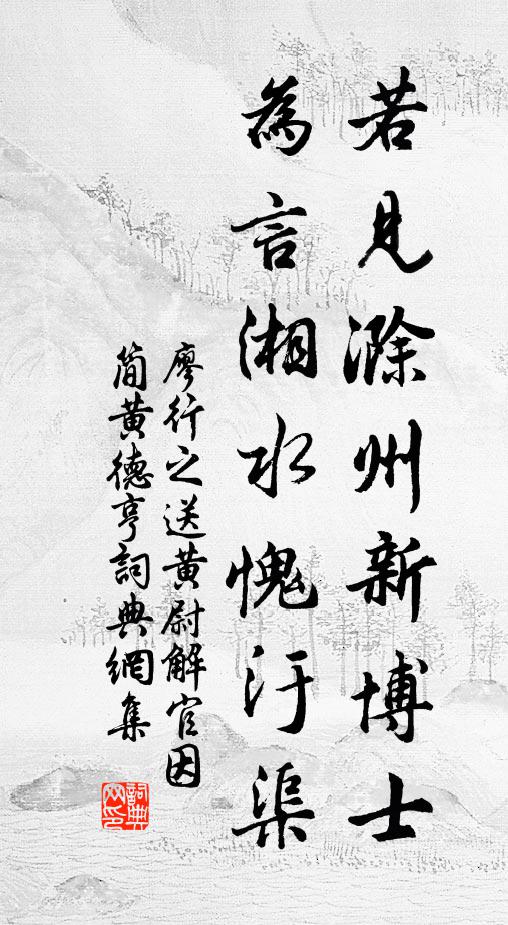 若見滁州新博士
為言湘水愧汙渠
廖行之送黃尉解官因
簡黃德亨詞典網集
詞典
网印